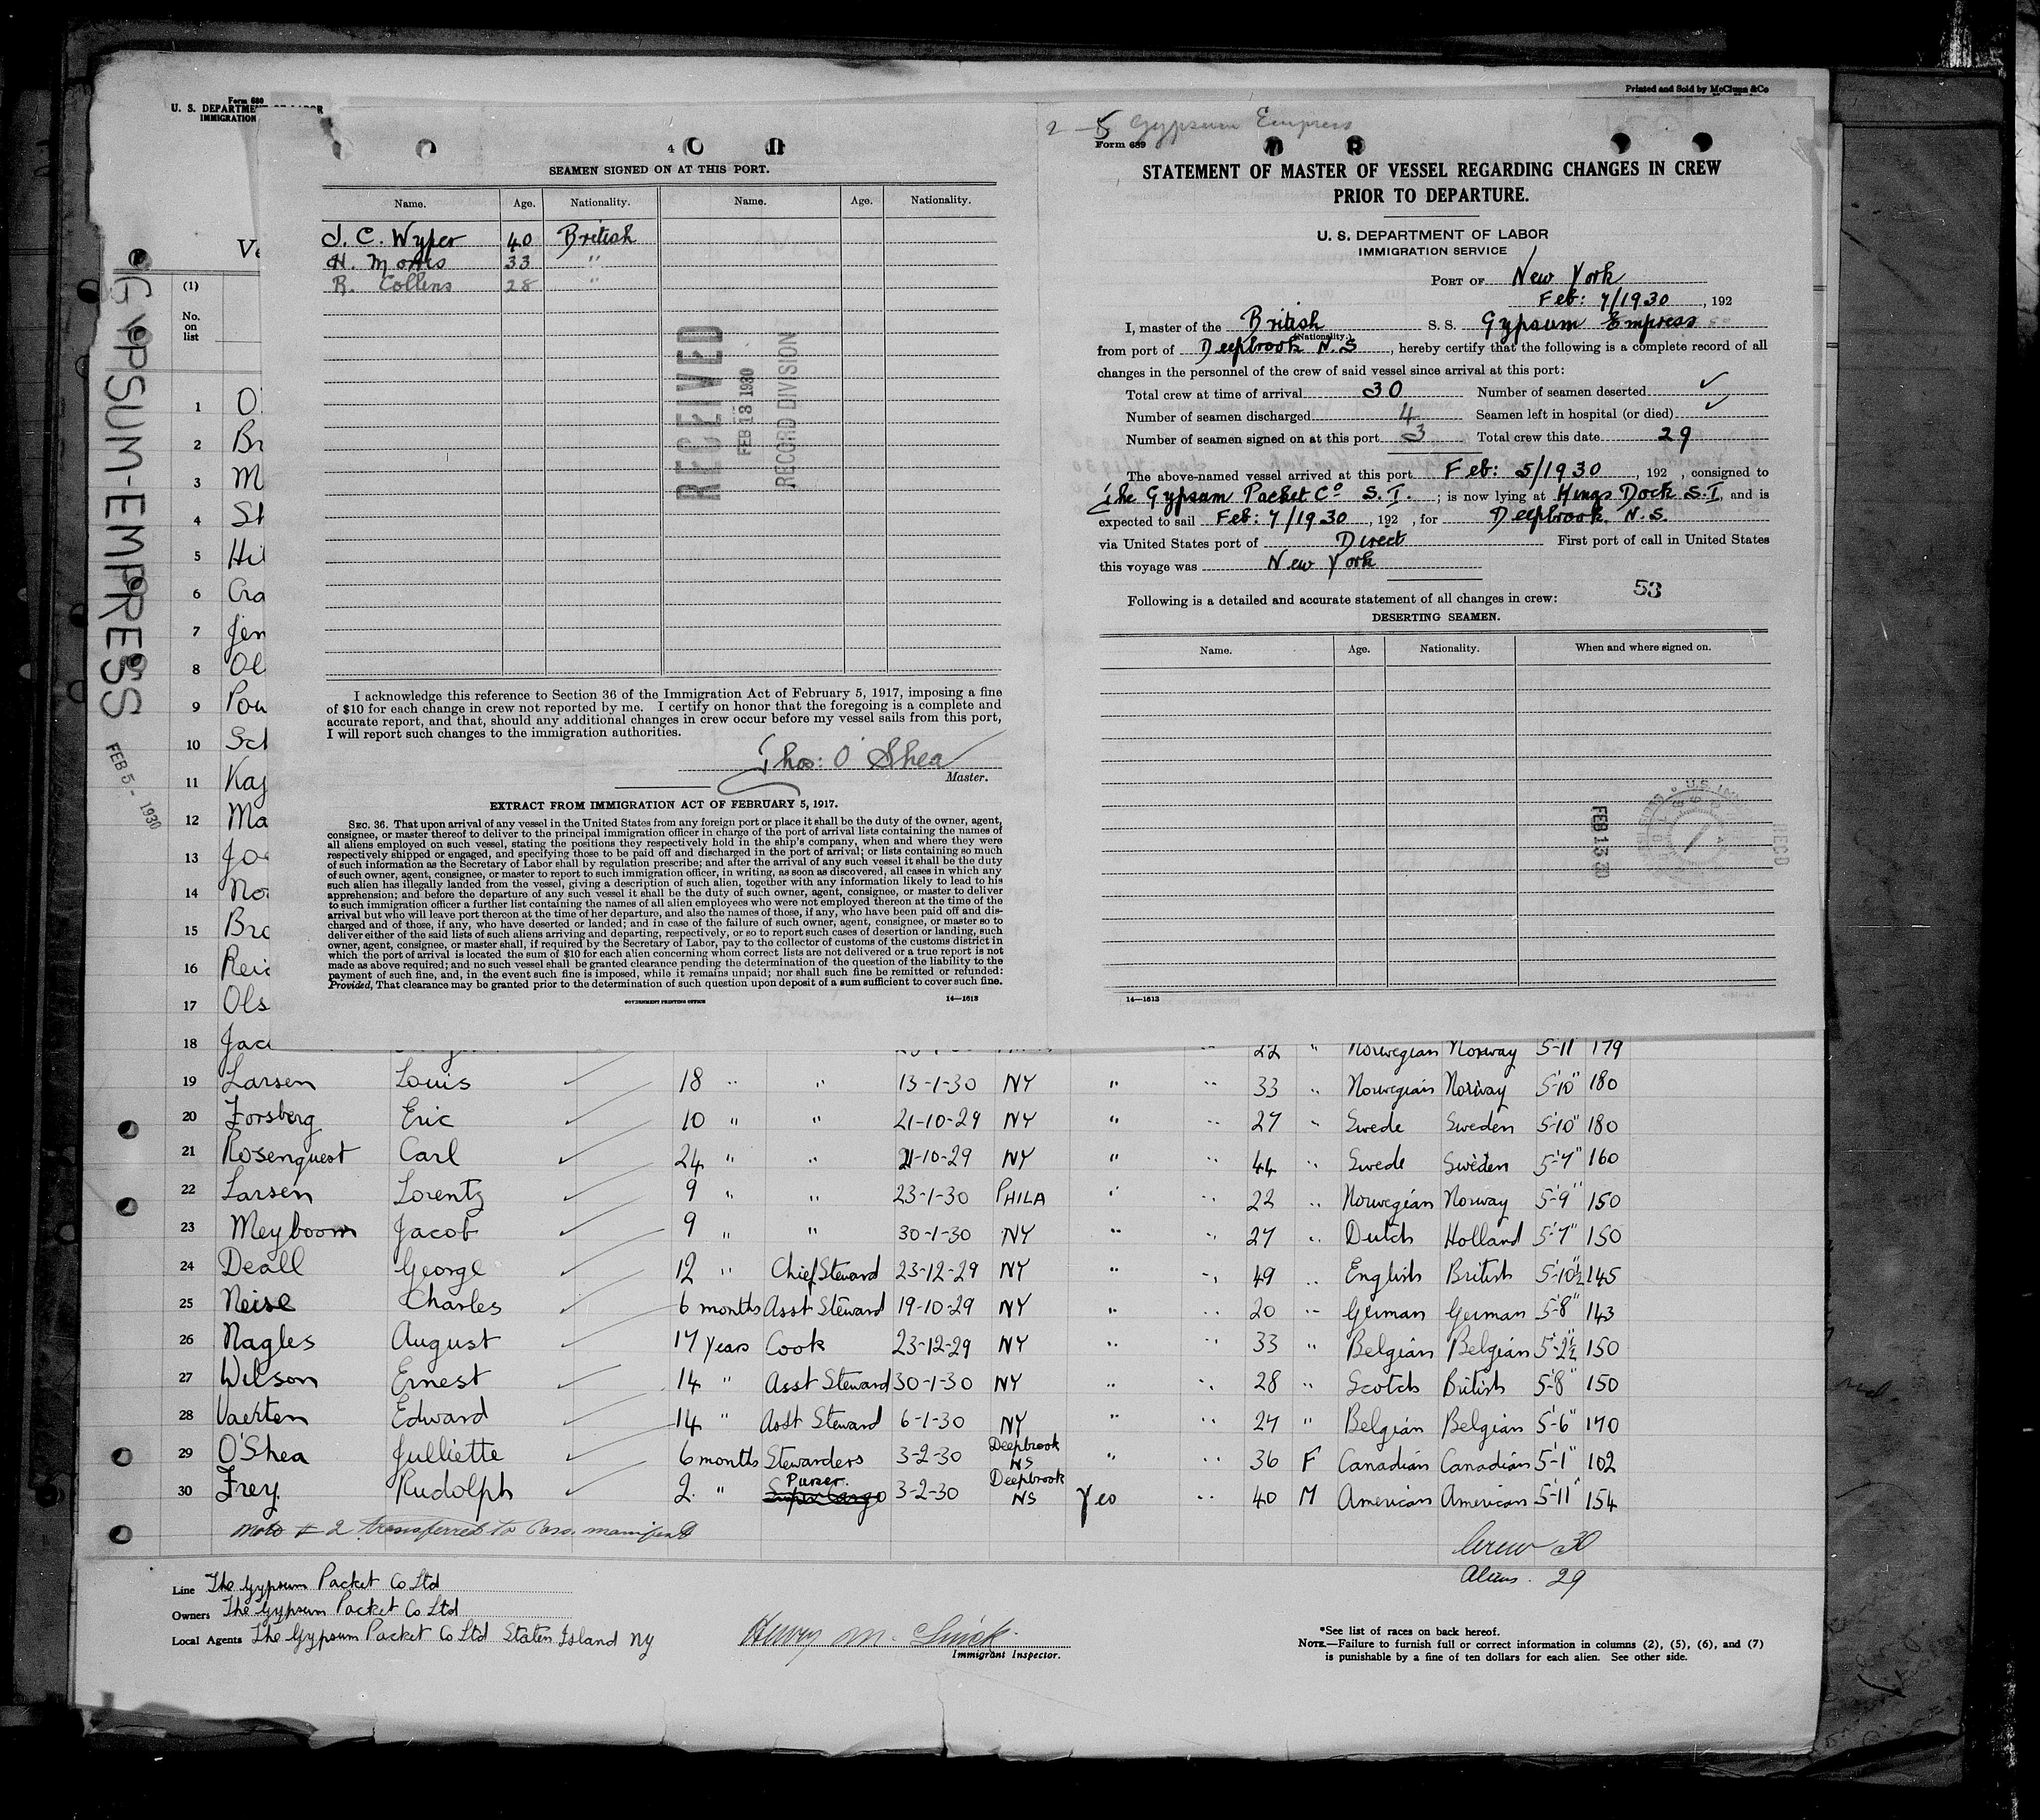 Form 680
U. S. DEPARTMENT OF LABOR
IMMIGRATION
Printed and Sold by McClunn &Co
GYPSUM-EMPRESS
FEB 5 - 1930
4
SEAMEN SIGNED ON AT THIS PORT.
Name. Age. Nationality. Name. Age. Nationality.
J. C. Wyper 40 British
H. Morris 33 "
R. Collins 28 "
RECEIVED
FEB 13 1930
RECORD DIVISION
I acknowledge this reference to Section 36 of the Immigration Act of February 5, 1917, imposing a fine
of $10 for each change in crew not reported by me. I certify on honor that the foregoing is a complete and
accurate report, and that, should any additional changes in crew occur before my vessel sails from this port,
I will report such changes to the immigration authorities.
Thos: O'Shea
Master.
EXTRACT FROM IMMIGRATION ACT OF FEBRUARY 5, 1917.
SEC. 36. That upon arrival of any vessel in the United States from any foreign port or place it shall be the duty of the owner, agent,
consignee, or master thereof to deliver to the principal immigration officer in charge of the port of arrival lists containing the names of
all aliens employed on such vessel, stating the positions they respectively hold in the ship's company, when and where they were
respectively shipped or engaged, and specifying those to be paid off and discharged in the port of arrival; or lists containing so much
of such information as the Secretary of Labor shall by regulation prescribe; and after the arrival of any such vessel it shall be the duty
of such owner, agent, consignee, or master to report to such immigration officer, in writing, as soon as discovered, all cases in which any
such alien has illegally landed from the vessel, giving a description of such alien, together with any information likely to lead to his
apprehension; and before the departure of any such vessel it shall be the duty of such owner, agent, consignee, or master to deliver
to such immigration officer a further list containing the names of all alien employees who were not employed thereon at the time of the
arrival but who will leave port thereon at the time of her departure, and also the names of those, if any, who have been paid off and dis-
charged and of those, if any, who have deserted or landed; and in case of the failure of such owner, agent, consignee, or master so to
deliver either of the said lists of such aliens arriving and departing, respectively, or so to report such cases of desertion or landing, such
owner, agent, consignee, or master shall, if required by the Secretary of Labor, pay to the collector of customs of the customs district in
which the port of arrival is located the sum of $10 for each alien concerning whom correct lists are not delivered or a true report is not
made as above required; and no such vessel shall be granted clearance pending the determination of the question of the liability to the
payment of such fine, and, in the event such fine is imposed, while it remains unpaid; nor shall such fine be remitted or refunded:
Provided, That clearance may be granted prior to the determination of such question upon deposit of a sum sufficient to cover such fine.
GOVERNMENT PRINTING OFFICE 14—1613
2 - 5 Gypsum Empress
Form 689
STATEMENT OF MASTER OF VESSEL REGARDING CHANGES IN CREW
PRIOR TO DEPARTURE.
U. S. DEPARTMENT OF LABOR
IMMIGRATION SERVICE
PORT OF New York
Feb: 7/1930, 192
I, master of the British S. S. Gypsum Empress
(Nationality.)
from port of Deepbrook N.S, hereby certify that the following is a complete record of all
changes in the personnel of the crew of said vessel since arrival at this port:
Total crew at time of arrival 30 Number of seamen deserted ✓
Number of seamen discharged 4 Seamen left in hospital (or died) ✓
Number of seamen signed on at this port 3 Total crew this date 29
The above-named vessel arrived at this port Feb: 5/1930, 192 , consigned to
The Gypsum Packet Co S.I. ; is now lying at Kings Dock S.I, and is
expected to sail Feb: 7/1930, 192 , for Deepbrook. N.S.
via United States port of Direct First port of call in United States
this voyage was New York
53
Following is a detailed and accurate statement of all changes in crew:
DESERTING SEAMEN.
Name. Age. Nationality. When and where signed on.
FEB 13 30
REC'D
14—1613
Ve
(1)
No.
on
list
1 O
2 Br
3 M
4 St
5 Hil
6 Cra
7 Jen
8 Ol
9 Pou
10 Sch
11 Kay
12 Ma
13 Jo
14 No
15 Bro
16 Reid
17 Ols
18 Jaco 22 " Norwegian Norway 5-11 179
19 Larsen Louis ✓ 18 " " 13-1-30 NY " " 33 " Norwegian Norway 5-10" 180
20 Forsberg Eric ✓ 10 " " 21-10-29 NY " " 27 " Swede Sweden 5-10" 180
21 Rosenquest Carl ✓ 24 " " 21-10-29 NY " " 44 " Swede Sweden 5-7" 160
22 Larsen Lorentz ✓ 9 " " 23-1-30 PHILA " " 22 " Norwegian Norway 5-9" 150
23 Meyboom Jacob ✓ 9 " " 30-1-30 NY " " 27 " Dutch Holland 5-7" 150
24 Deall George ✓ 12 " Chief Steward 23-12-29 NY " " 49 " English British 5-10½ 145
25 Neise Charles ✓ 6 months Asst Steward 19-10-29 NY " " 20 " German German 5-8" 143
26 Nagles August ✓ 17 years Cook 23-12-29 NY " " 33 " Belgian Belgian 5-2½ 150
27 Wilson Ernest ✓ 14 " Asst Steward 30-1-30 NY " " 28 " Scotch British 5-8" 150
28 Vaerten Edward ✓ 14 " Asst Steward 6-1-30 NY " " 27 " Belgian Belgian 5-6" 170
29 O'Shea Julliette ✓ 6 months Stewarders 3-2-30 Deepbrook NS " " 36 F Canadian Canadian 5-1" 102
30 Frey Rudolph ✓ 2 " Purser. Supercargo 3-2-30 Deepbrook NS Yes " 40 M American American 5-11" 154
note # 2 transferred to Pass. manifest
Crew 30
Aliens. 29
Line The Gypsum Packet Co Ltd
Owners The Gypsum Packet Co Ltd
Local Agents The Gypsum Packet Co Ltd Staten Island NY
Henry M.
Immigrant Inspector.
*See list of races on back hereof.
NOTE.—Failure to furnish full or correct information in columns (2), (5), (6), and (7)
is punishable by a fine of ten dollars for each alien. See other side.